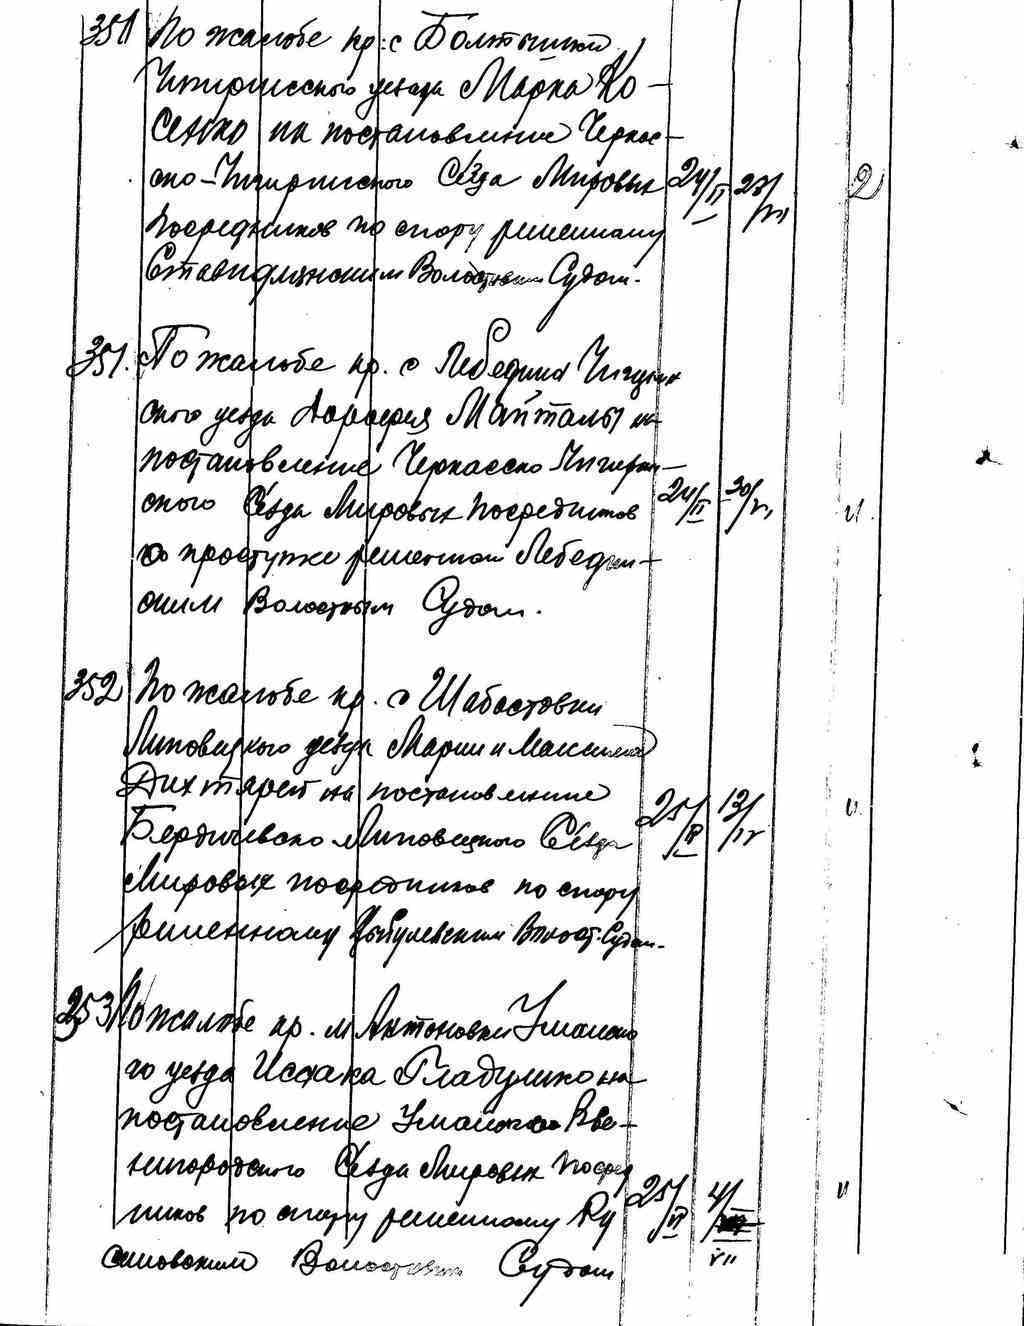 351 По жалобе кр: с Болтышки
Чигиринского уезда Марка Ко-
сенко на постановление Черкас-
ско-Чигиринского Съезда Мировых 24/II 23/VII 2
посредников по спору решенному
Ставидлянским Волостным Судом.
351. По жалобе кр. с Лебедина Чигирин
ского уезда на
постановление Черкасско Чигирин-
ского Съезда Мировых посредников 24/II 30/VI
о проступке решенном Лебедин-
ским Волостным Судом.
352 По жалобе кр. с Шабастовки
Липовецкого уезда Марии и Максима
Дихтярей на постановление
Бердичевско Липовецкого Съезда 25/II 13/IV
Мировых посредников по спору
решенному Цыбулевским Волост. Судом.
353 По жалобе кр. м Антоновки Уманско
го уезда Исаака Гладушко на
постановление Уманско Зве-
нигородского Съезда Мировых посред
ников по спору решенному Ру 25/VI 4/VII
Волостным Судом